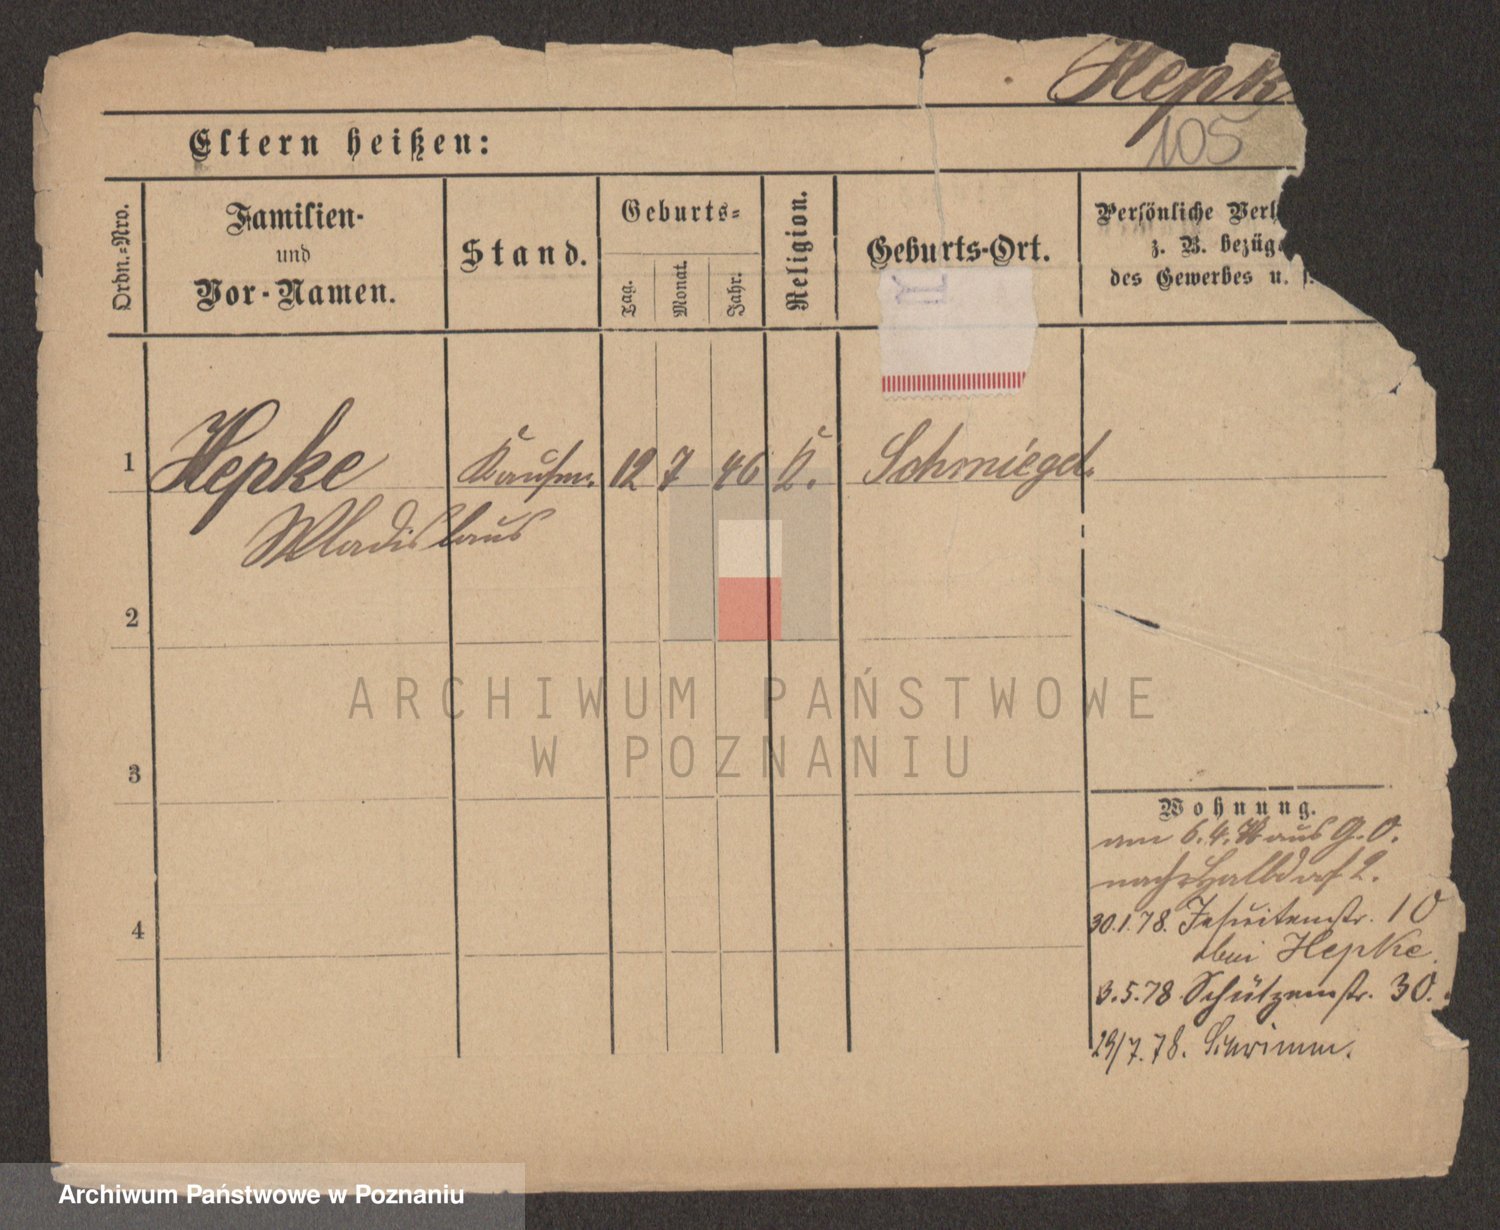 Hepk
105
Eltern heißen:
Ordn.-Nro.
Familien-
und
Vor-Namen.
Stand.
Geburts-
Tag.
Monat.
Jahr.
Religion.
Geburts-Ort.
Persönliche Verh
z. B. bezüg
des Gewerbes u. s.
1
Hepke
Kaufm.
12
7
46
K.
Schmiegel.
Wladislaus
2
3
4
Wohnung.
am 6.4. aus G.O.
nach Halbdorf 2.
30.1.78. Jesuitenstr. 10
bei Hepke.
3.5.78 Schützenstr. 30.
29/7.78. Schrimm.
ARCHIWUM PAŃSTWOWE
W POZNANIU
Archiwum Państwowe w Poznaniu